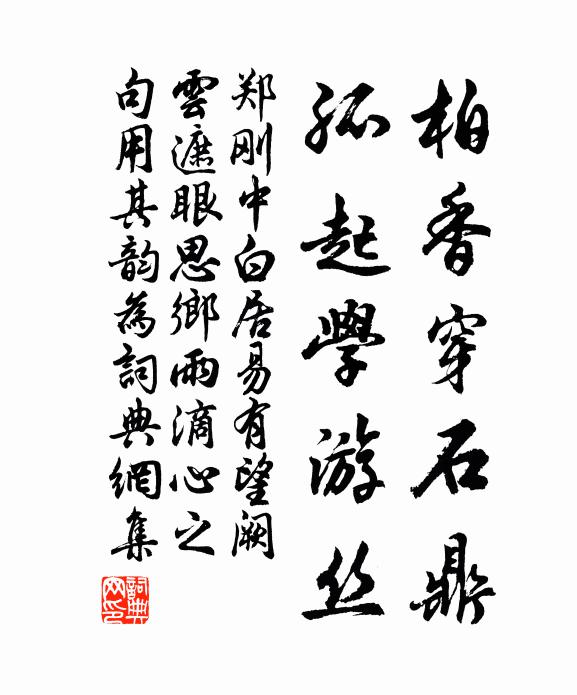 柏香穿石鼎
孤起學游丝
郑刚中白居易有望阙
雲遮眼思鄉雨滴心之
句用其韵為詞典網集
詞典
网印